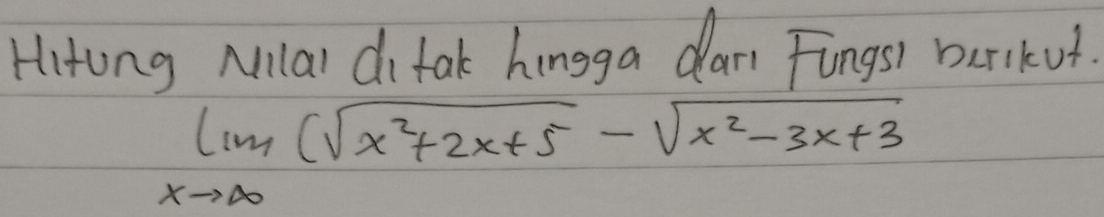 Hitung Nilai di tak hingga dari Fungsi berikut.
lim (√x²+2x+5 - √x²-3x+3
x→∞